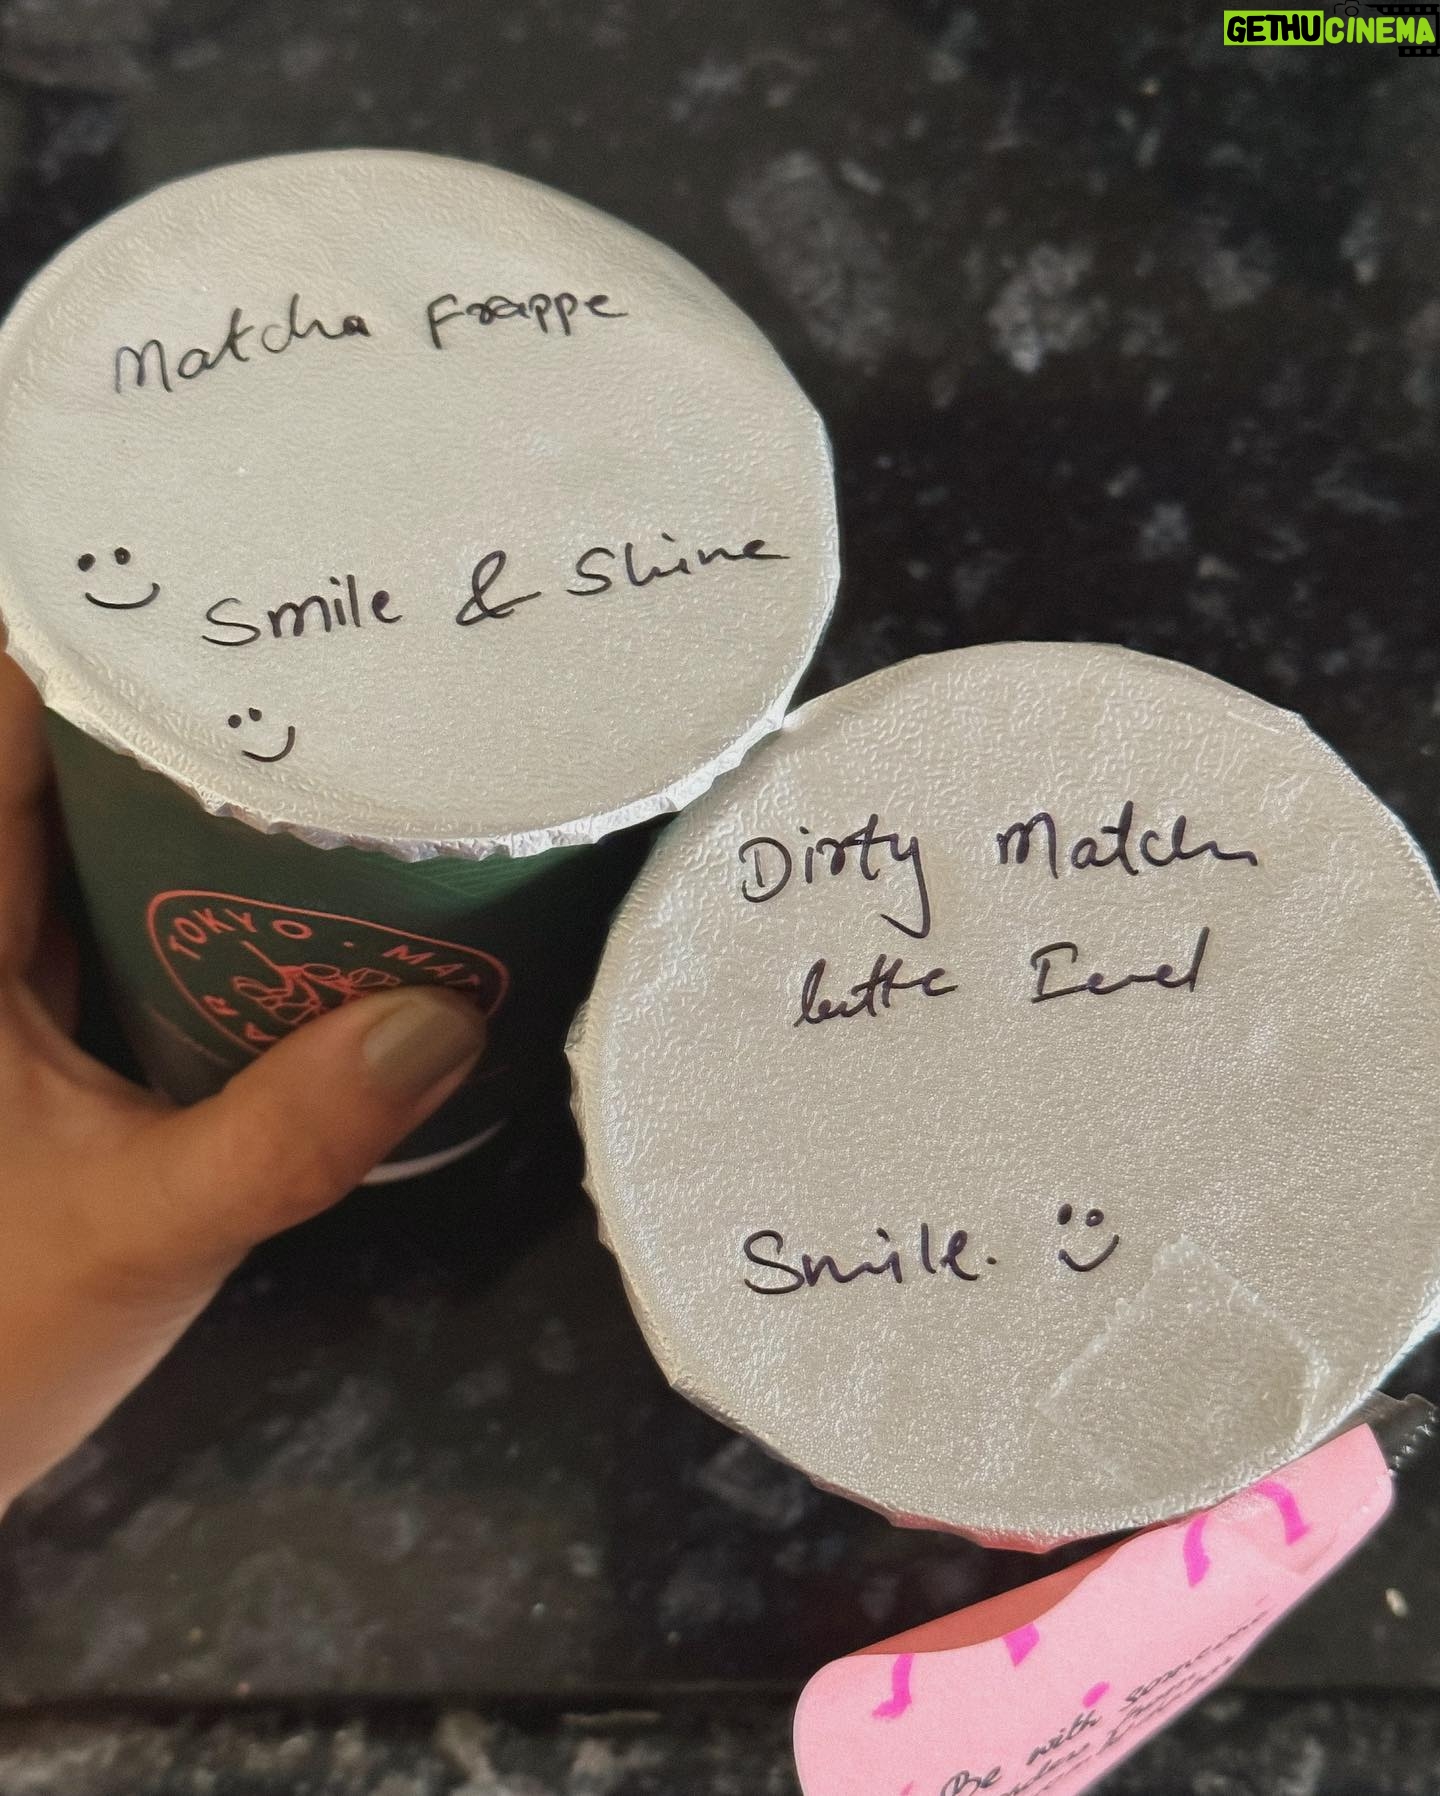 GETHUCINEMA
Matcha Frappe
Smile & Shine
TOKYO · MAT
BAR
Dirty Matcha
latte Iced
Smile.
Be with someone